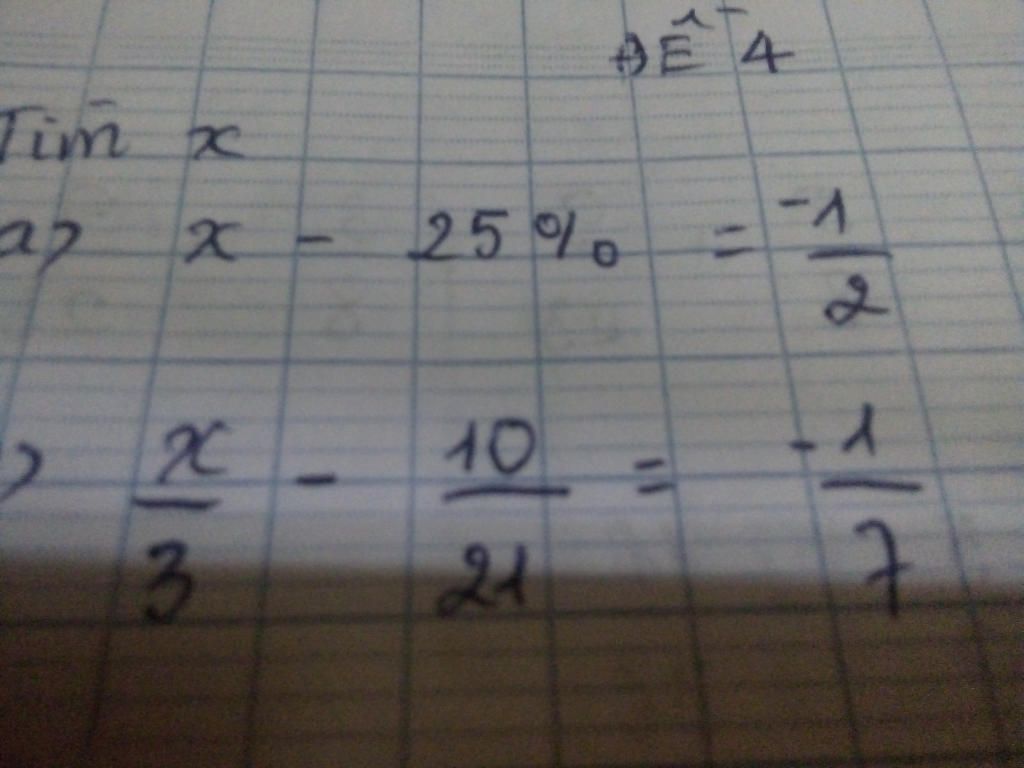 ĐỀ 4
Tìm x
a) x - 25% = -1/2
) x/3 - 10/21 = -1/7